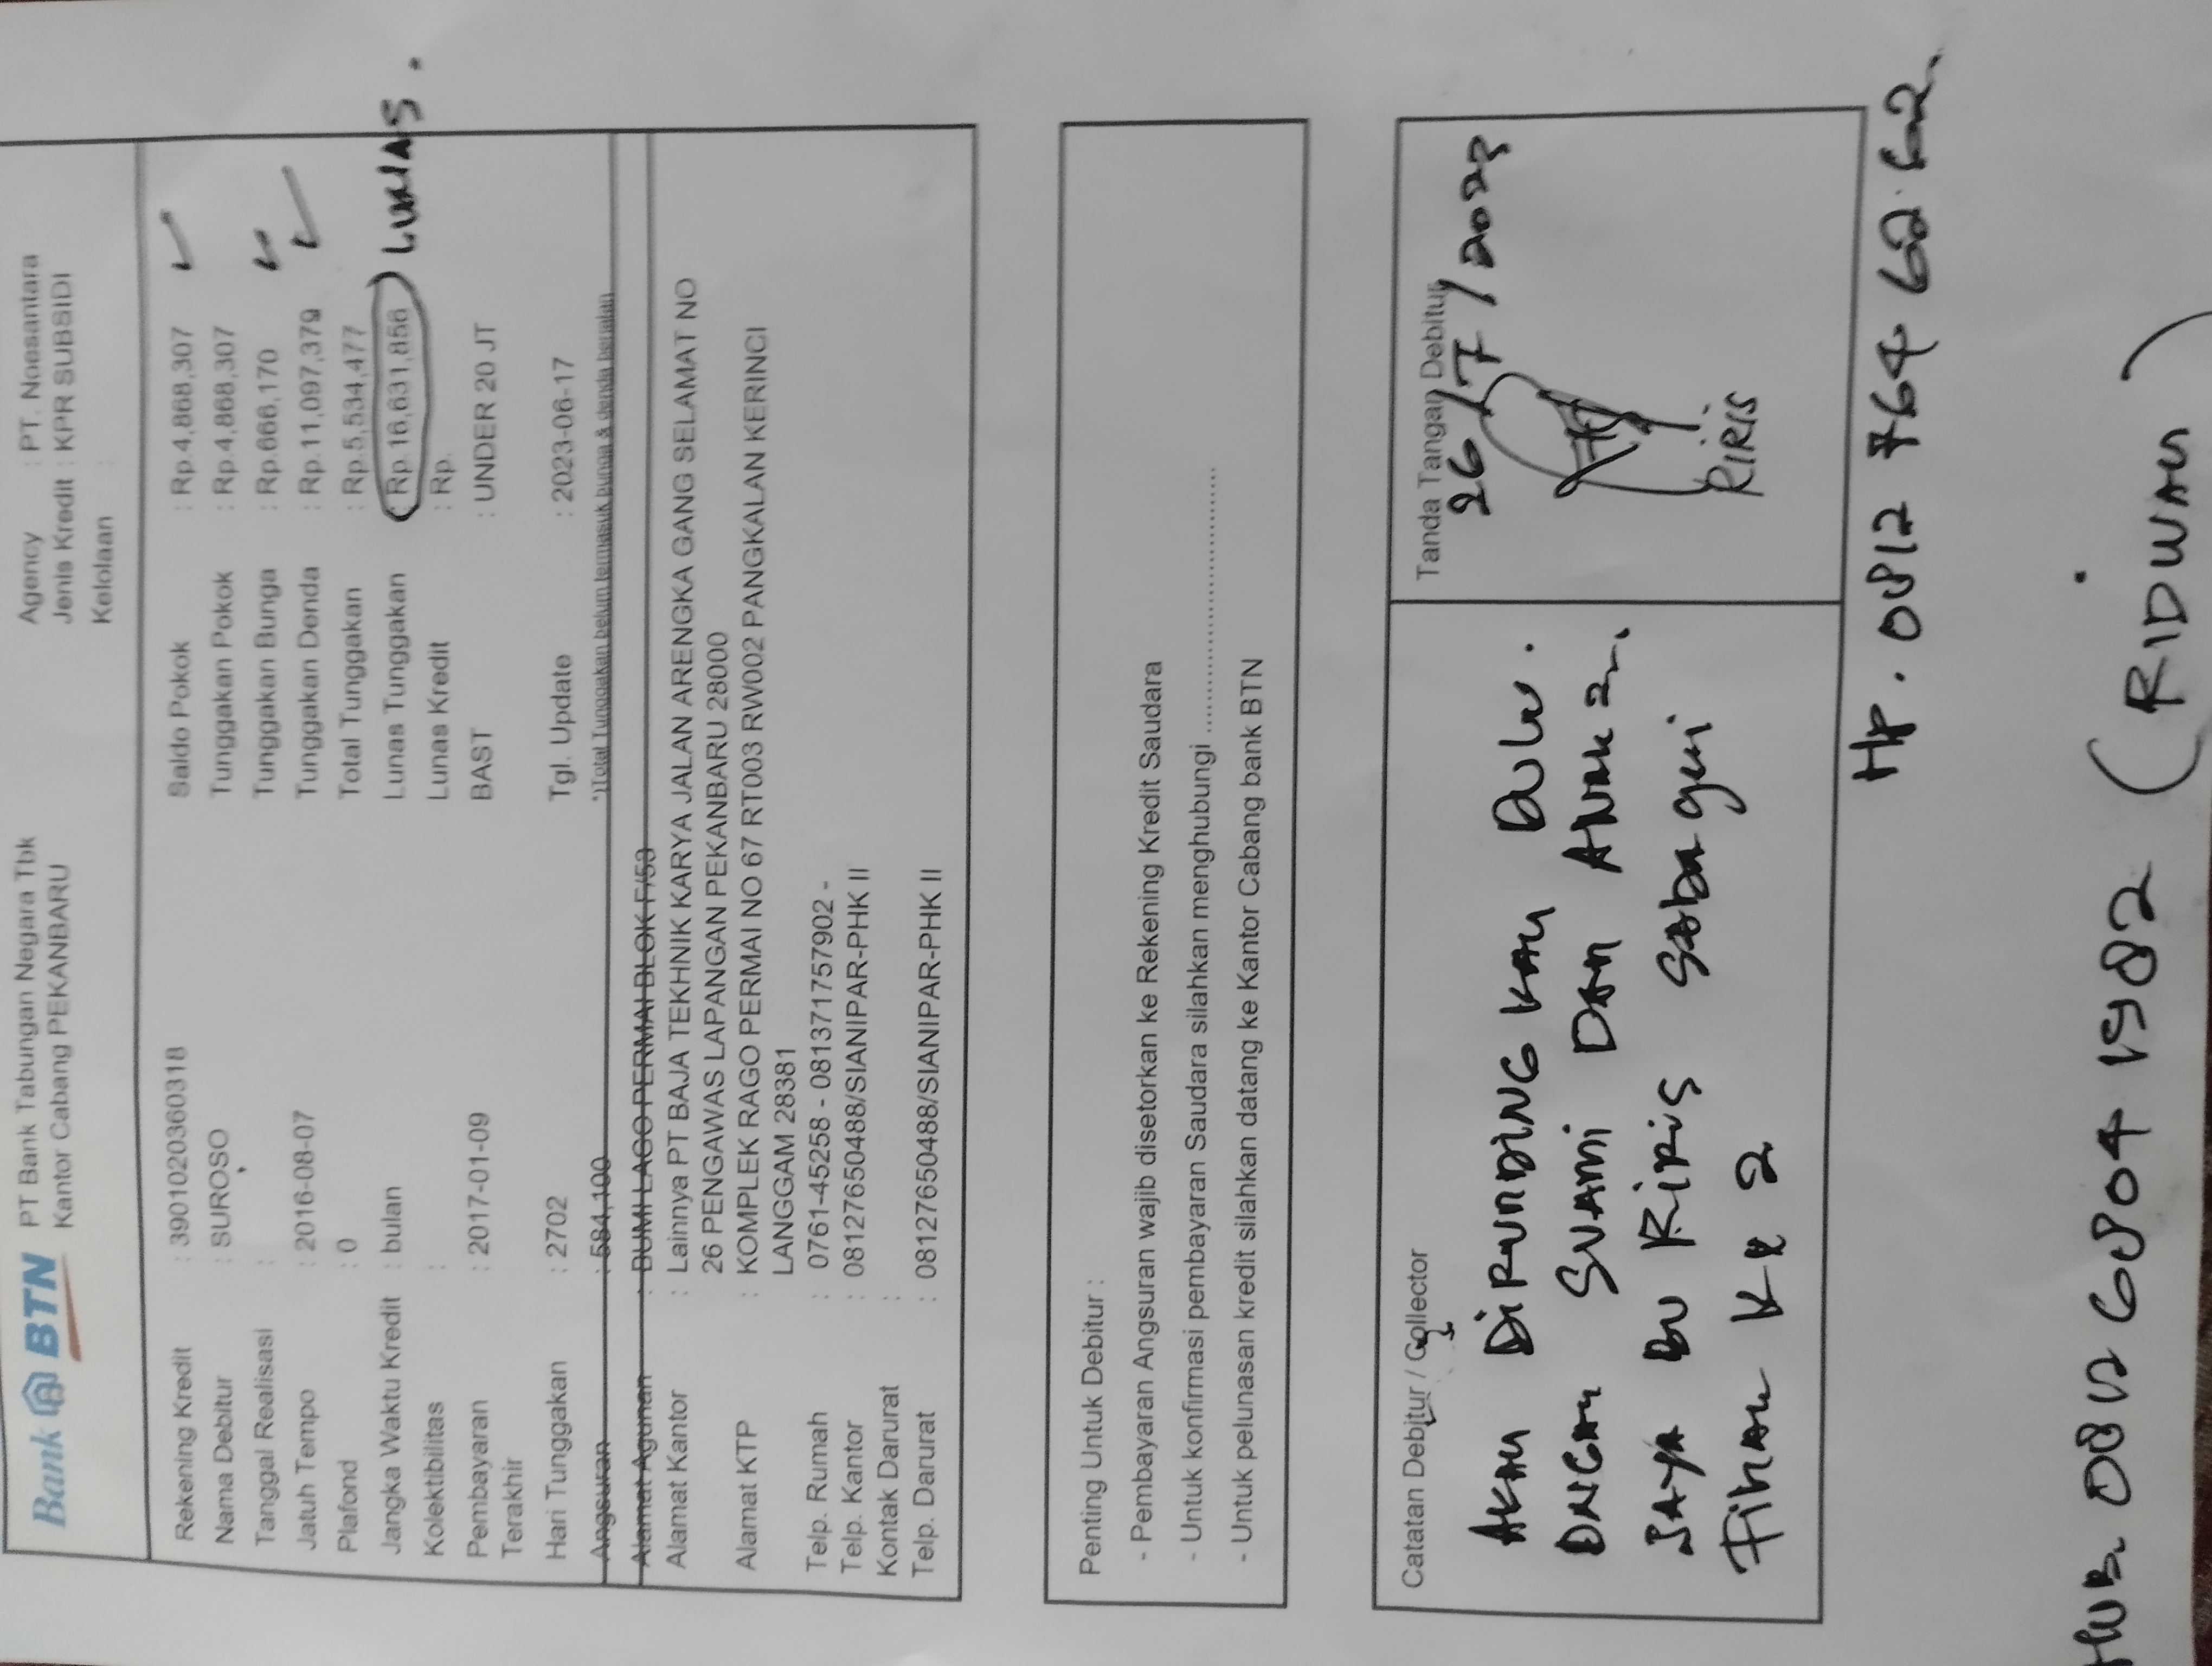 Bank BTN
PT Bank Tabungan Negara Tbk
Kantor Cabang PEKANBARU
Agency : PT. Noesantara
Jenis Kredit : KPR SUBSIDI
Kelolaan :
Rekening Kredit : 3901020360318
Nama Debitur : SUROSO
Tanggal Realisasi :
Jatuh Tempo : 2016-08-07
Plafond : 0
Jangka Waktu Kredit : bulan
Kolektibilitas :
Pembayaran Terakhir : 2017-01-09
Hari Tunggakan : 2702
Angsuran : 584,100
Saldo Pokok : Rp.4,868,307
Tunggakan Pokok : Rp.4,868,307
Tunggakan Bunga : Rp.666,170
Tunggakan Denda : Rp.11,097,379
Total Tunggakan : Rp.5,534,477
Lunas Tunggakan : Rp.16,631,856 LUNAS.
Lunas Kredit : Rp.
BAST : UNDER 20 JT
Tgl. Update : 2023-06-17
*)Total Tunggakan belum termasuk bunga & denda berjalan
Alamat Agunan : BUMI LAGO PERMAI BLOK F/53
Alamat Kantor : Lainnya PT BAJA TEKHNIK KARYA JALAN ARENGKA GANG SELAMAT NO
26 PENGAWAS LAPANGAN PEKANBARU 28000
Alamat KTP : KOMPLEK RAGO PERMAI NO 67 RT003 RW002 PANGKALAN KERINCI
LANGGAM 28381
Telp. Rumah : 0761-45258 - 081371757902 -
Telp. Kantor : 081276550488/SIANIPAR-PHK II
Kontak Darurat :
Telp. Darurat : 081276550488/SIANIPAR-PHK II
Penting Untuk Debitur :
- Pembayaran Angsuran wajib disetorkan ke Rekening Kredit Saudara
- Untuk konfirmasi pembayaran Saudara silahkan menghubungi ..............................
- Untuk pelunasan kredit silahkan datang ke Kantor Cabang bank BTN
Catatan Debitur / Collector
AKAN DIRUNDINGKAN DULU.
DNGAN SUAMI DAN ANAK2.
SAYA BU RIRIS SEbagai
FIHAK KE 2
Tanda Tangan Debitur
26/7/2023
RIRIS
HP. 0812 764 62.62.
HUB. 0812 6804 1982 (RIDWAN)